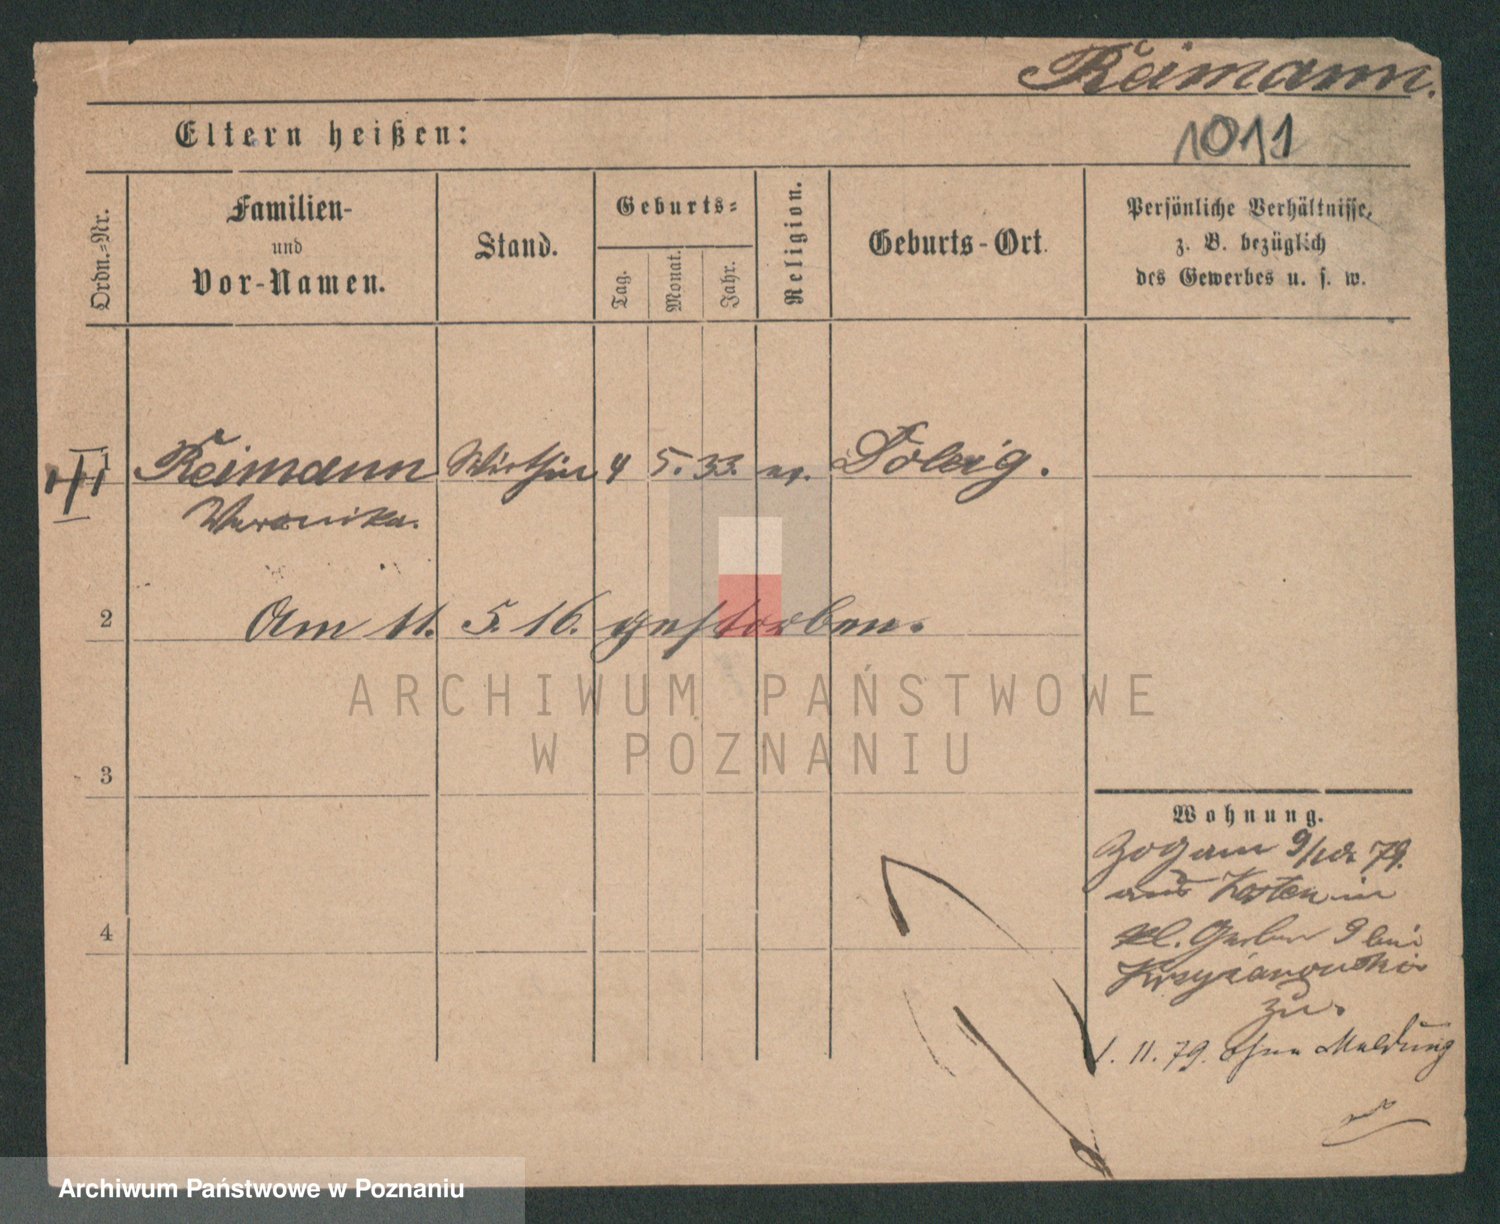 Reimann.
Eltern heißen:
1011
Ordn.-Nr.
Familien-
und
Vor-Namen.
Stand.
Geburts-
Tag.
Monat.
Jahr.
Religion.
Geburts-Ort.
Persönliche Verhältnisse,
z. B. bezüglich
des Gewerbes u. s. w.
1 Reimann Wirthin 4 5. 33.
Veronika.
2 Am 11. 5. 16. gestorben.
ARCHIWUM PAŃSTWOWE
W POZNANIU
3
Wohnung.
Zog am 79.
aus Kosten in
kl. Gerber 9 bei
Krzyżanowski
zu
4
1. 11. 79. ohne Meldung
Archiwum Państwowe w Poznaniu